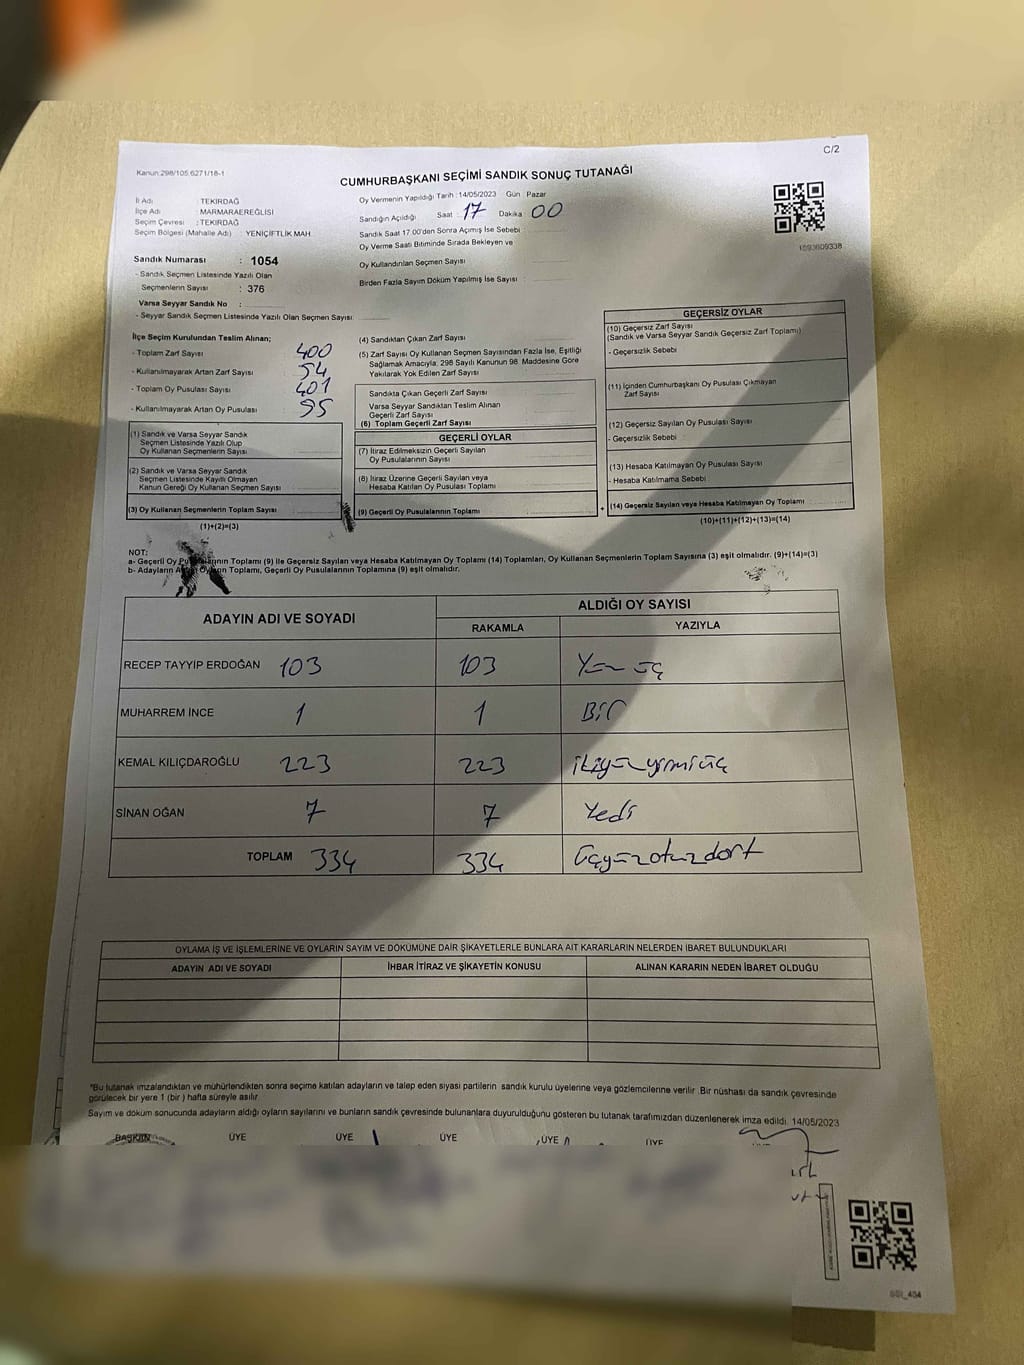 C/2
Kanun 298/105,6271/18-1
CUMHURBAŞKANI SEÇİMİ SANDIK SONUÇ TUTANAĞI
İl Adı : TEKİRDAĞ
İlçe Adı : MARMARAEREĞLİSİ
Seçim Çevresi : TEKİRDAĞ
Seçim Bölgesi (Mahalle Adı) : YENİÇİFTLİK MAH.
Sandık Numarası : 1054
- Sandık Seçmen Listesinde Yazılı Olan
Seçmenlerin Sayısı : 376
Varsa Seyyar Sandık No :
- Seyyar Sandık Seçmen Listesinde Yazılı Olan Seçmen Sayısı:
Oy Vermenin Yapıldığı Tarih :14/05/2023 Gün Pazar
Sandığın Açıldığı Saat : 17 Dakika 00
Sandık Saat 17.00'den Sonra Açımış İse Sebebi :
Oy Verme Saati Bitiminde Sırada Bekleyen ve
Oy Kullandırılan Seçmen Sayısı
Birden Fazla Sayım Döküm Yapılmış İse Sayısı :
1593609338
İlçe Seçim Kurulundan Teslim Alınan;
- Toplam Zarf Sayısı 400
- Kullanılmayarak Artan Zarf Sayısı 54
- Toplam Oy Pusulası Sayısı 401
- Kullanılmayarak Artan Oy Pusulası 95
(1) Sandık ve Varsa Seyyar Sandık
Seçmen Listesinde Yazılı Olup
Oy Kullanan Seçmenlerin Sayısı
(2) Sandık ve Varsa Seyyar Sandık
Seçmen Listesinde Kayıtlı Olmayan
Kanun Gereği Oy Kullanan Seçmen Sayısı
(3) Oy Kullanan Seçmenlerin Toplam Sayısı
(1)+(2)=(3)
(4) Sandıktan Çıkan Zarf Sayısı
(5) Zarf Sayısı Oy Kullanan Seçmen Sayısından Fazla İse, Eşitliği
Sağlamak Amacıyla; 298 Sayılı Kanunun 98. Maddesine Göre
Yakılarak Yok Edilen Zarf Sayısı
Sandıkta Çıkan Geçerli Zarf Sayısı
Varsa Seyyar Sandıktan Teslim Alınan
Geçerli Zarf Sayısı
(6) Toplam Geçerli Zarf Sayısı
GEÇERLİ OYLAR
(7) İtiraz Edilmeksizin Geçerli Sayılan
Oy Pusulalarının Sayısı
(8) İtiraz Üzerine Geçerli Sayılan veya
Hesaba Katılan Oy Pusulası Toplamı
(9) Geçerli Oy Pusulalarının Toplamı
+
GEÇERSİZ OYLAR
(10) Geçersiz Zarf Sayısı
(Sandık ve Varsa Seyyar Sandık Geçersiz Zarf Toplamı)
- Geçersizlik Sebebi
(11) İçinden Cumhurbaşkanı Oy Pusulası Çıkmayan
Zarf Sayısı
(12) Geçersiz Sayılan Oy Pusulası Sayısı
- Geçersizlik Sebebi :
(13) Hesaba Katılmayan Oy Pusulası Sayısı
- Hesaba Katılmama Sebebi
(14) Geçersiz Sayılan veya Hesaba Katılmayan Oy Toplamı
(10)+(11)+(12)+(13)=(14)
NOT:
a- Geçerli Oy Pusulalarının Toplamı (9) ile Geçersiz Sayılan veya Hesaba Katılmayan Oy Toplamı (14) Toplamları, Oy Kullanan Seçmenlerin Toplam Sayısına (3) eşit olmalıdır. (9)+(14)=(3)
b- Adayların Oyların Toplamı, Geçerli Oy Pusulalarının Toplamına (9) eşit olmalıdır.
ADAYIN ADI VE SOYADI
ALDIĞI OY SAYISI
RAKAMLA YAZIYLA
RECEP TAYYİP ERDOĞAN 103 103 Yüz üç
MUHARREM İNCE 1 1 Bir
KEMAL KILIÇDAROĞLU 223 223 ikiyüzyirmiüç
SİNAN OĞAN 7 7 Yedi
TOPLAM 334 334 Üçyüzotuzdört
OYLAMA İŞ VE İŞLEMLERİNE VE OYLARIN SAYIM VE DÖKÜMÜNE DAİR ŞİKAYETLERLE BUNLARA AİT KARARLARIN NELERDEN İBARET BULUNDUKLARI
ADAYIN ADI VE SOYADI İHBAR İTİRAZ VE ŞİKAYETİN KONUSU ALINAN KARARIN NEDEN İBARET OLDUĞU
*Bu tutanak imzalandıktan ve mühürlendikten sonra seçime katılan adayların ve talep eden siyasi partilerin sandık kurulu üyelerine veya gözlemcilerine verilir. Bir nüshası da sandık çevresinde
görülecek bir yere 1 (bir ) hafta süreyle asılır.
Sayım ve döküm sonucunda adayların aldığı oyların sayılarını ve bunların sandık çevresinde bulunanlara duyurulduğunu gösteren bu tutanak tarafımızdan düzenlenerek imza edildi. 14/05/2023
BAŞKAN ÜYE ÜYE ÜYE ÜYE ÜYE